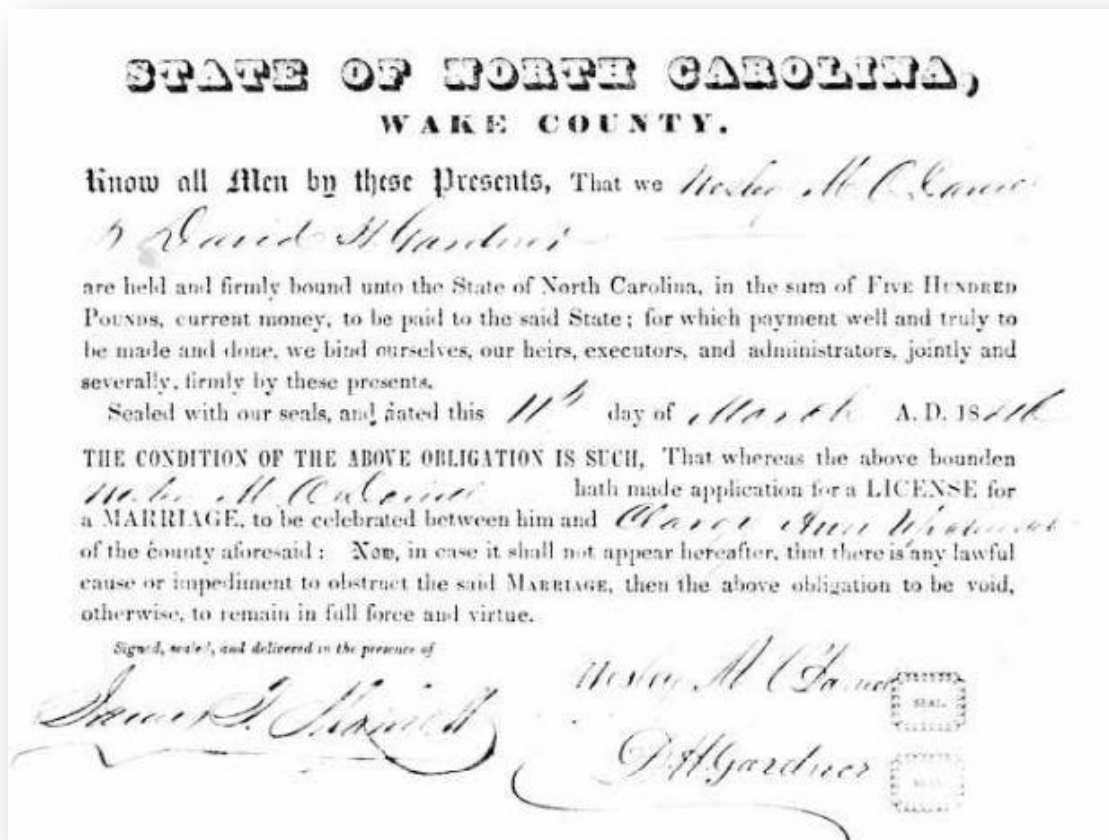 STATE OF NORTH CAROLINA,
WAKE COUNTY.
Know all Men by these Presents, That we Wesley M. C.
& David H Gardner
are held and firmly bound unto the State of North Carolina, in the sum of FIVE HUNDRED
POUNDS, current money, to be paid to the said State; for which payment well and truly to
be made and done, we bind ourselves, our heirs, executors, and administrators, jointly and
severally, firmly by these presents.
Sealed with our seals, and dated this 11th day of March A. D. 18
THE CONDITION OF THE ABOVE OBLIGATION IS SUCH, That whereas the above bounden
M. hath made application for a LICENSE for
a MARRIAGE, to be celebrated between him and Ann
of the county aforesaid: Now, in case it shall not appear hereafter, that there is any lawful
cause or impediment to obstruct the said MARRIAGE, then the above obligation to be void,
otherwise, to remain in full force and virtue.
Signed, sealed, and delivered in the presence of
Wesley M. C. SEAL.
James T.
D. H. Gardner SEAL.